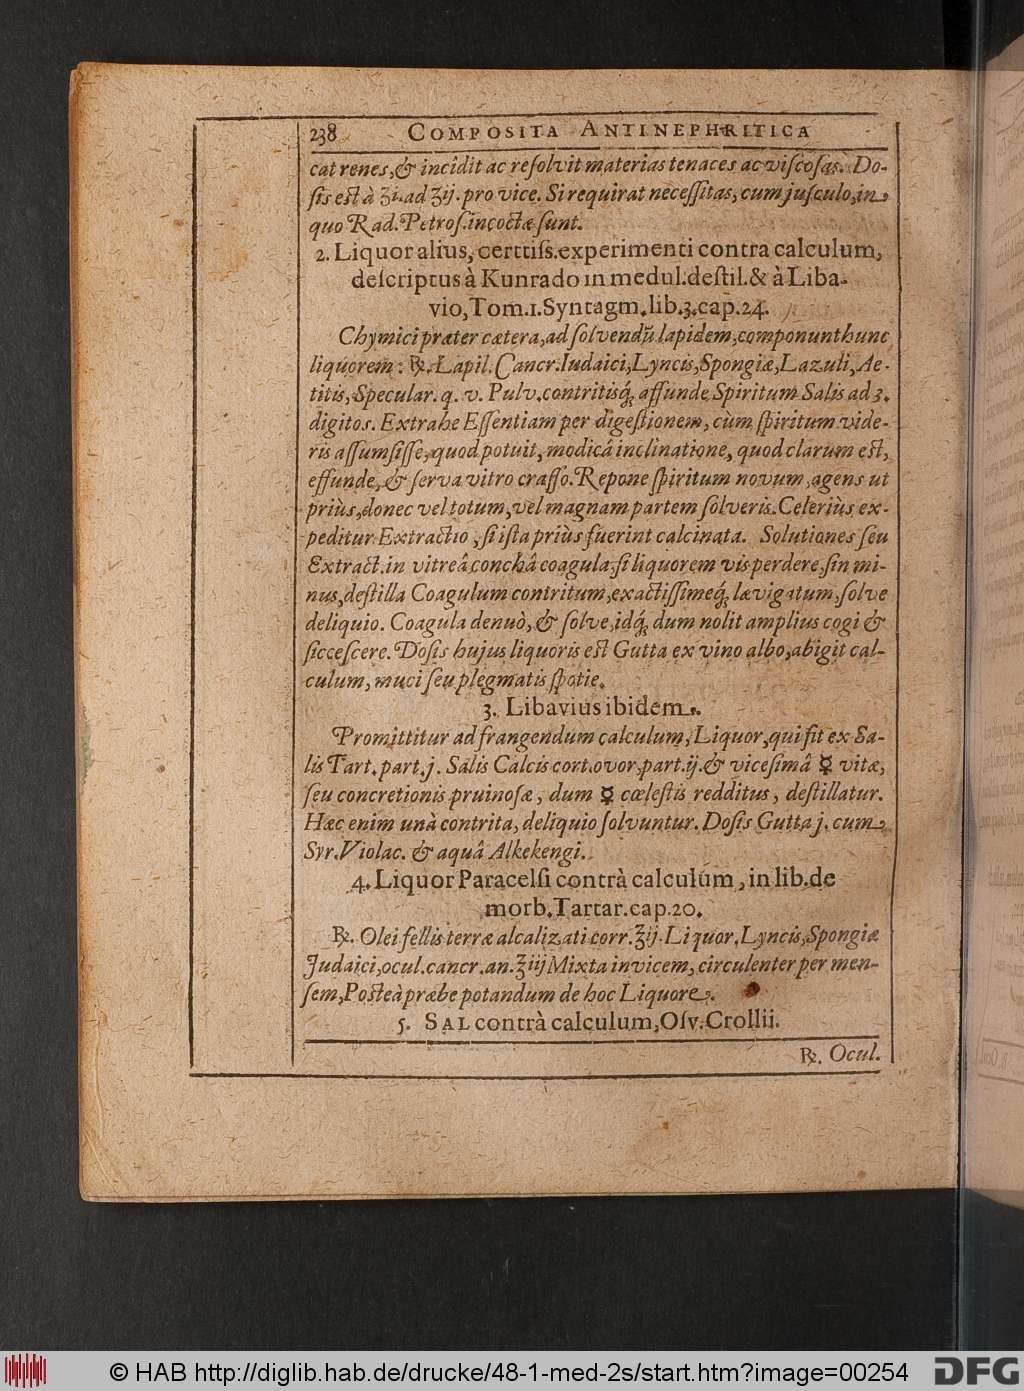 238 COMPOSITA ANTINEPHRITICA
cat renes, & incidit ac reſolvit materias tenaces ac viſcoſas. Do-
ſis eſt à ʒi. ad ʒij. pro vice. Si requirat neceſſitas, cum juſculo, in
quo Rad. Petroſ. incoctæ ſunt.
2. Liquor alius, certtiſs. experimenti contra calculum,
deſcriptus à Kunrado in medul. deſtil. & à Liba-
vio, Tom. 1. Syntagm. lib. 3. cap. 24.
Chymici præter cætera, ad ſolvendū lapidem, componunt hunc
liquorem: ℞. Lapil. Cancr. Iudaici, Lyncis, Spongiæ, Lazuli, Ae-
titis, Specular. q. v. Pulv. contritisq́; affunde Spiritum Salis ad 3.
digitos. Extrahe Eſſentiam per digeſtionem, cùm ſpiritum vide-
ris aſſumſiſſe, quod potuit, modicâ inclinatione, quod clarum eſt,
effunde, & ſerva vitro craſſo. Repone ſpiritum novum, agens ut
priùs, donec vel totum, vel magnam partem ſolveris. Celeriùs ex-
peditur Extractio, ſi iſta priùs fuerint calcinata. Solutiones ſeu
Extract. in vitreâ conchâ coagula, ſi liquorem vis perdere, ſin mi-
nus, deſtilla Coagulum contritum, exactiſſimeq́; lævigatum, ſolve
deliquio. Coagula denuò, & ſolve, idq́; dum nolit amplius cogi &
ſicceſcere. Doſis hujus liquoris eſt Gutta ex vino albo, abigit cal-
culum, muci ſeu plegmatis ſpetie.
3. Libavius ibidem.
Promittitur ad frangendum calculum, Liquor, qui fit ex Sa-
lis Tart. part. j. Salis Calcis cort. ovor. part. ij. & viceſimâ ☿ vitæ,
ſeu concretionis pruinoſæ, dum ☿ cœleſtis redditus, deſtillatur.
Hæc enim unà contrita, deliquio ſolvuntur. Doſis Gutta j. cum
Syr. Violac. & aquâ Alkekengi.
4. Liquor Paracelſi contrà calculum, in lib. de
morb. Tartar. cap. 20.
℞. Olei fellis terræ alcalizati corr. ʒij. Liquor. Lyncis, Spongiæ
Judaici, ocul. cancr. an. ʒiij Mixta invicem, circulenter per men-
ſem, Poſteà præbe potandum de hoc Liquore.
5. SAL contrà calculum, Oſv. Crollii.
℞. Ocul.
© HAB http://diglib.hab.de/drucke/48-1-med-2s/start.htm?image=00254
DFG